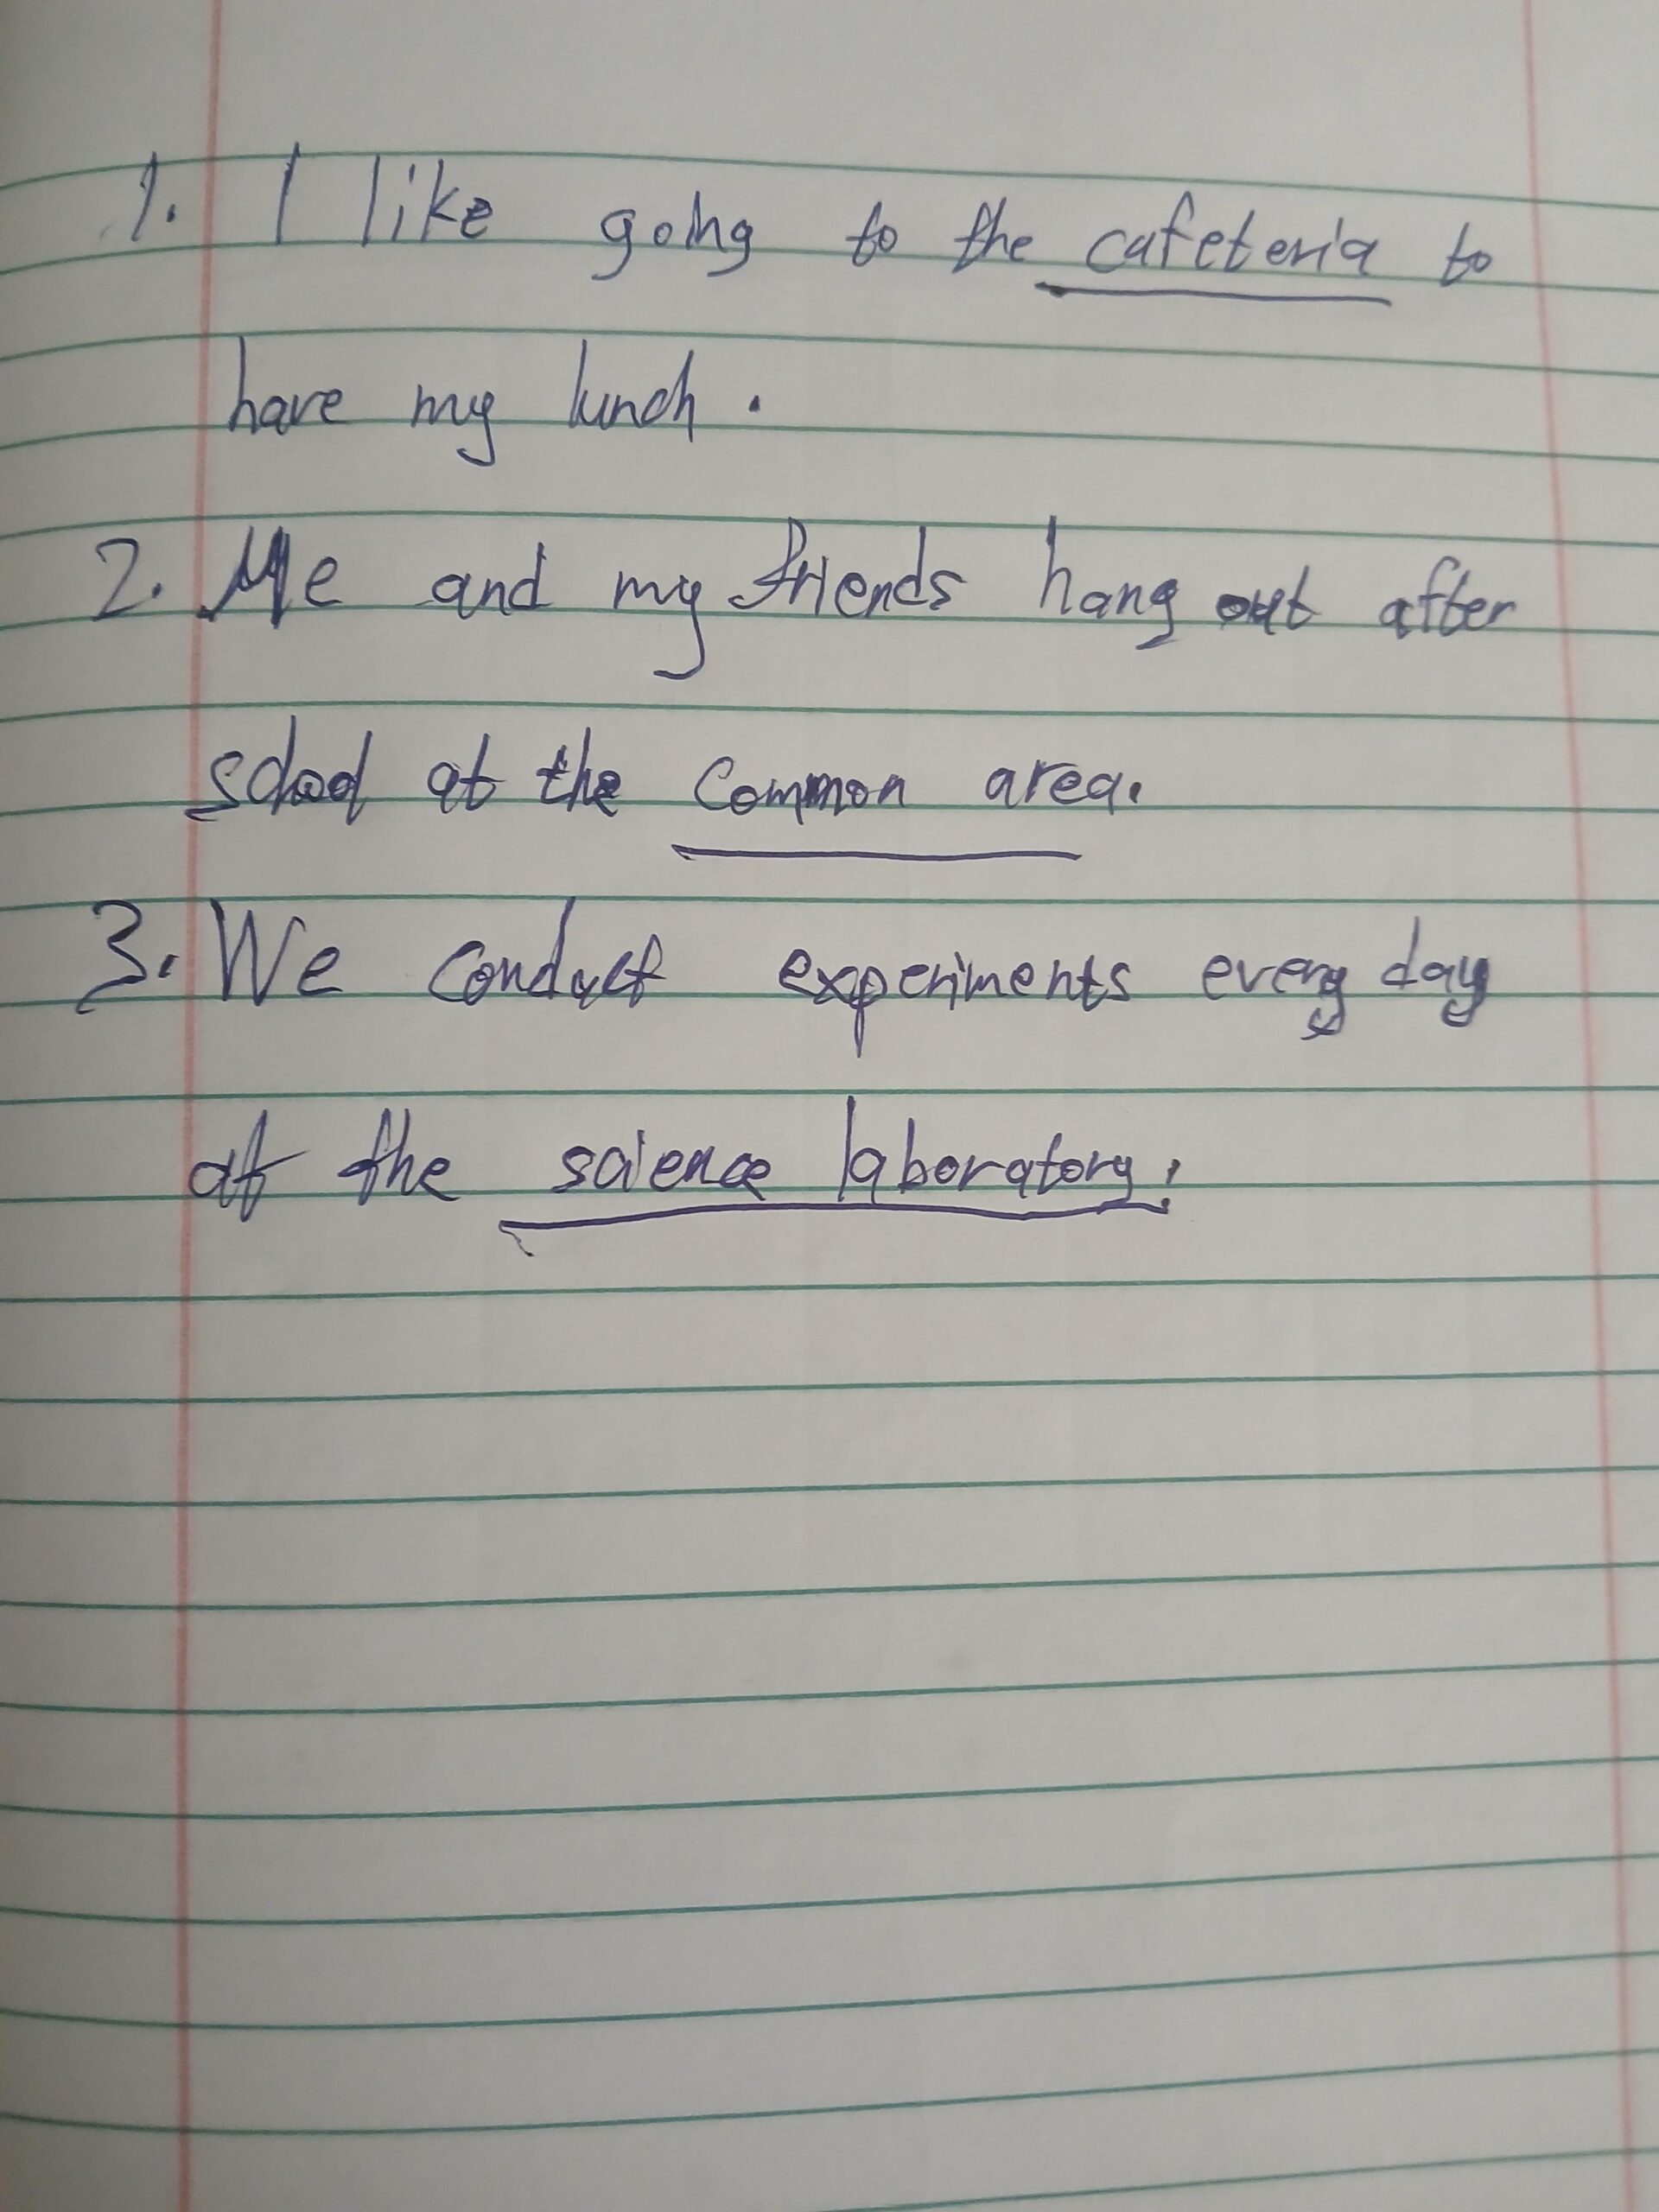 1. I like going to the cafeteria to
have my lunch.
2. Me and my friends hang out after
school at the common area.
3. We conduct experiments every day
at the science laboratory.